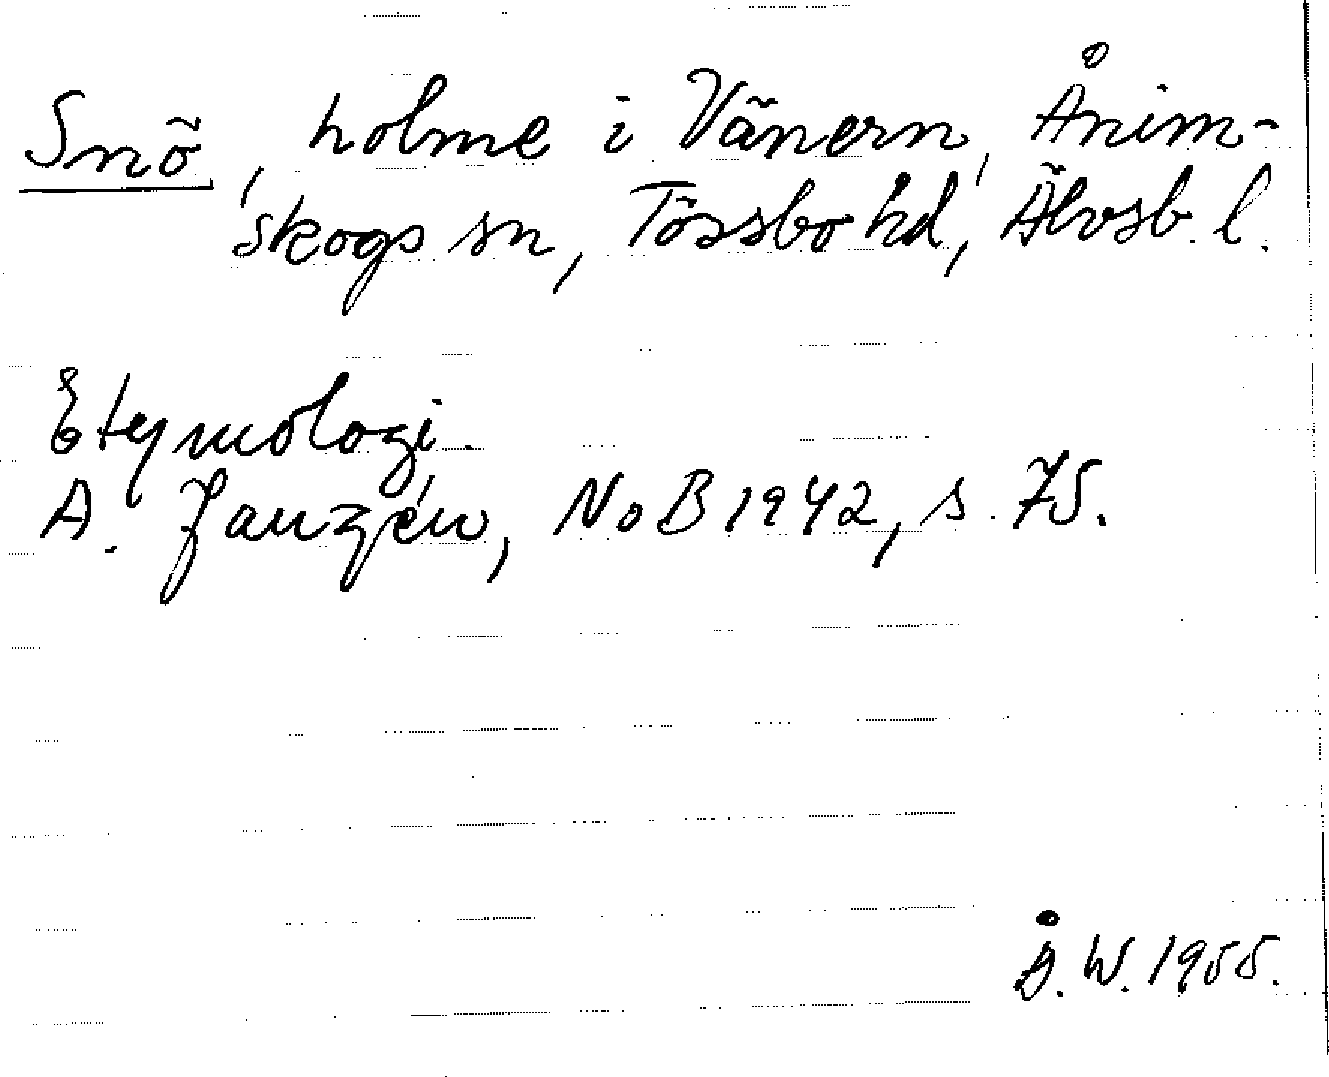 Snö, holme i Vänern, Ånim-
skogs sn, Tössbo hd, Älvsb. l.
Etymologi.
A. Janzén, NoB 1942, s. 75.
Å. W. 1955.